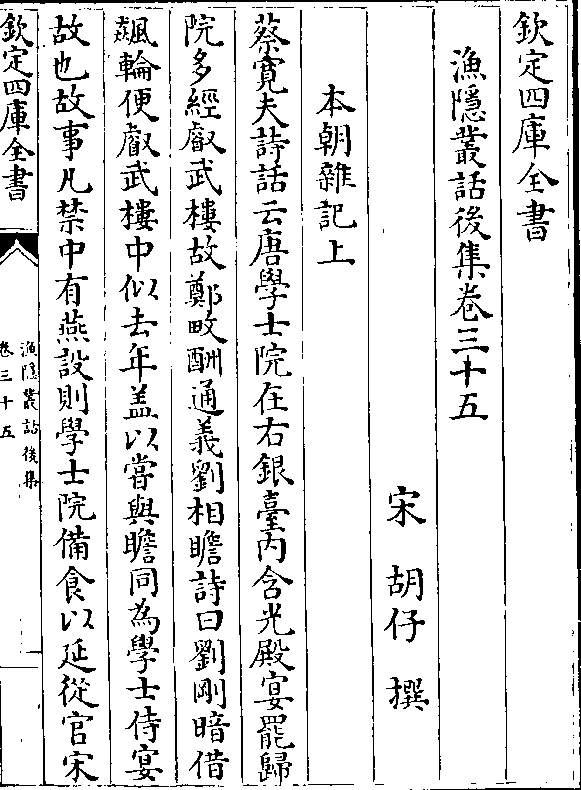 欽定四庫全書
漁隱叢話後集卷三十五
宋 胡仔 撰
本朝雜記上
蔡寛夫詩話云唐學士院在右銀臺内含光殿宴罷歸
院多經叡武樓故鄭畋酬通義劉相瞻詩曰劉剛暗借
飊輪便叡武樓中似去年盖以嘗與瞻同為學士侍宴
故也故事凡禁中有燕設則學士院備食以延從官宋
欽定四庫全書
漁隱叢話後集
卷三十五